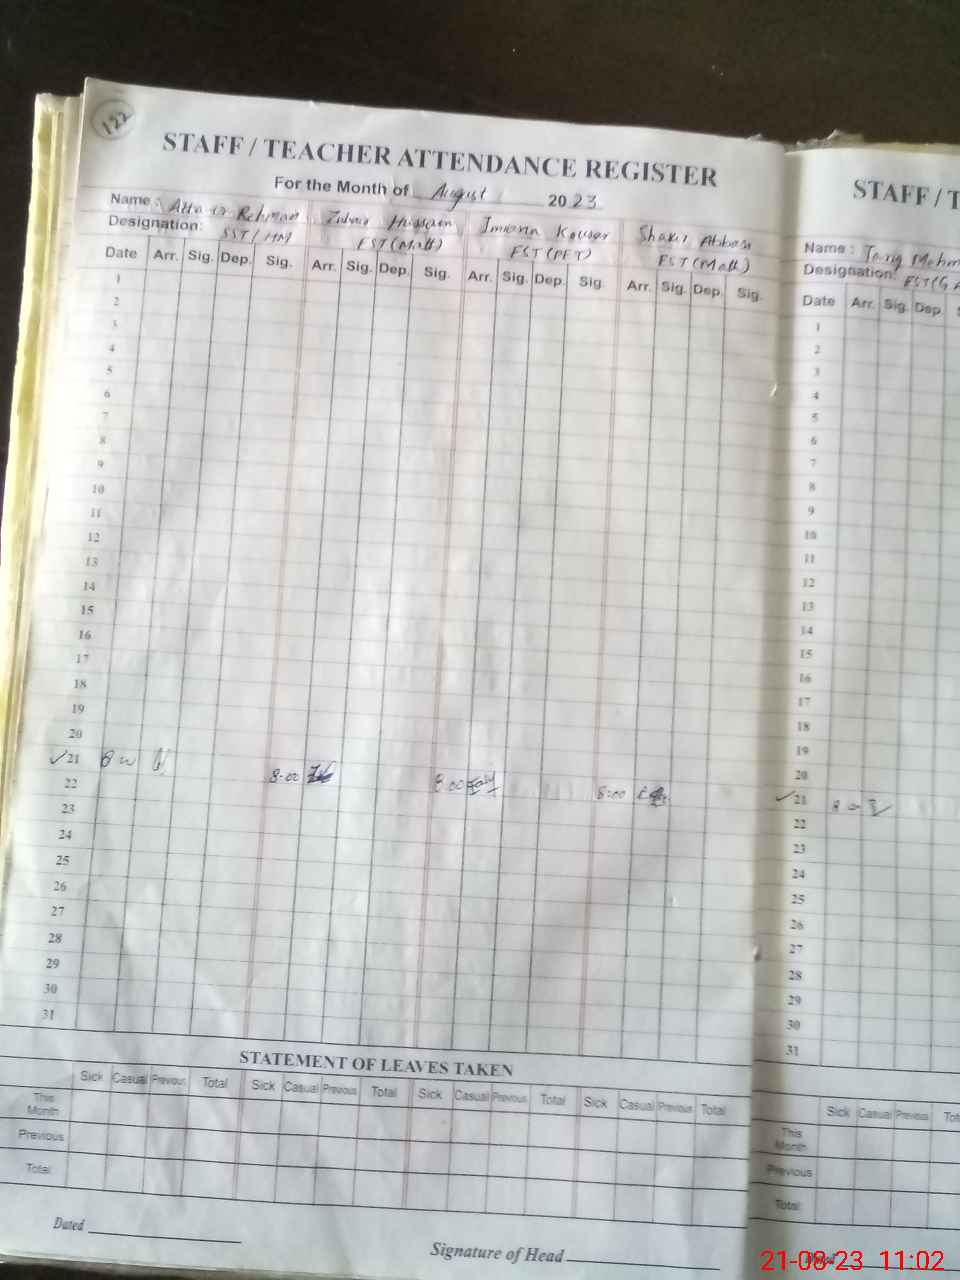 122
STAFF / TEACHER ATTENDANCE REGISTER
For the Month of August 2023
Name: Atta ur Rehman Zubair Hussain Imrana Kousar Shakir Abbas
Designation: SST/HM EST (Math) EST (PET) EST (Math)
Date Arr. Sig. Dep. Sig. Arr. Sig. Dep. Sig. Arr. Sig. Dep. Sig. Arr. Sig. Dep. Sig.
1
2
3
4
5
6
7
8
9
10
11
12
13
14
15
16
17
18
19
20
21 8:00 8:00 8:00
22
23
24
25
26
27
28
29
30
31
STATEMENT OF LEAVES TAKEN
Sick Casual Previous Total Sick Casual Previous Total Sick Casual Previous Total Sick Casual Previous Total
This Month
Previous
Total
Dated
Signature of Head
STAFF / T
Name: Tariq Mehm
Designation: EST
Date Arr. Sig. Dep.
1
2
3
4
5
6
7
8
9
10
11
12
13
14
15
16
17
18
19
20
21
22
23
24
25
26
27
28
29
30
31
Sick Casual Previous Tot
This Month
Previous
Total
Dated
21-08-23 11:02